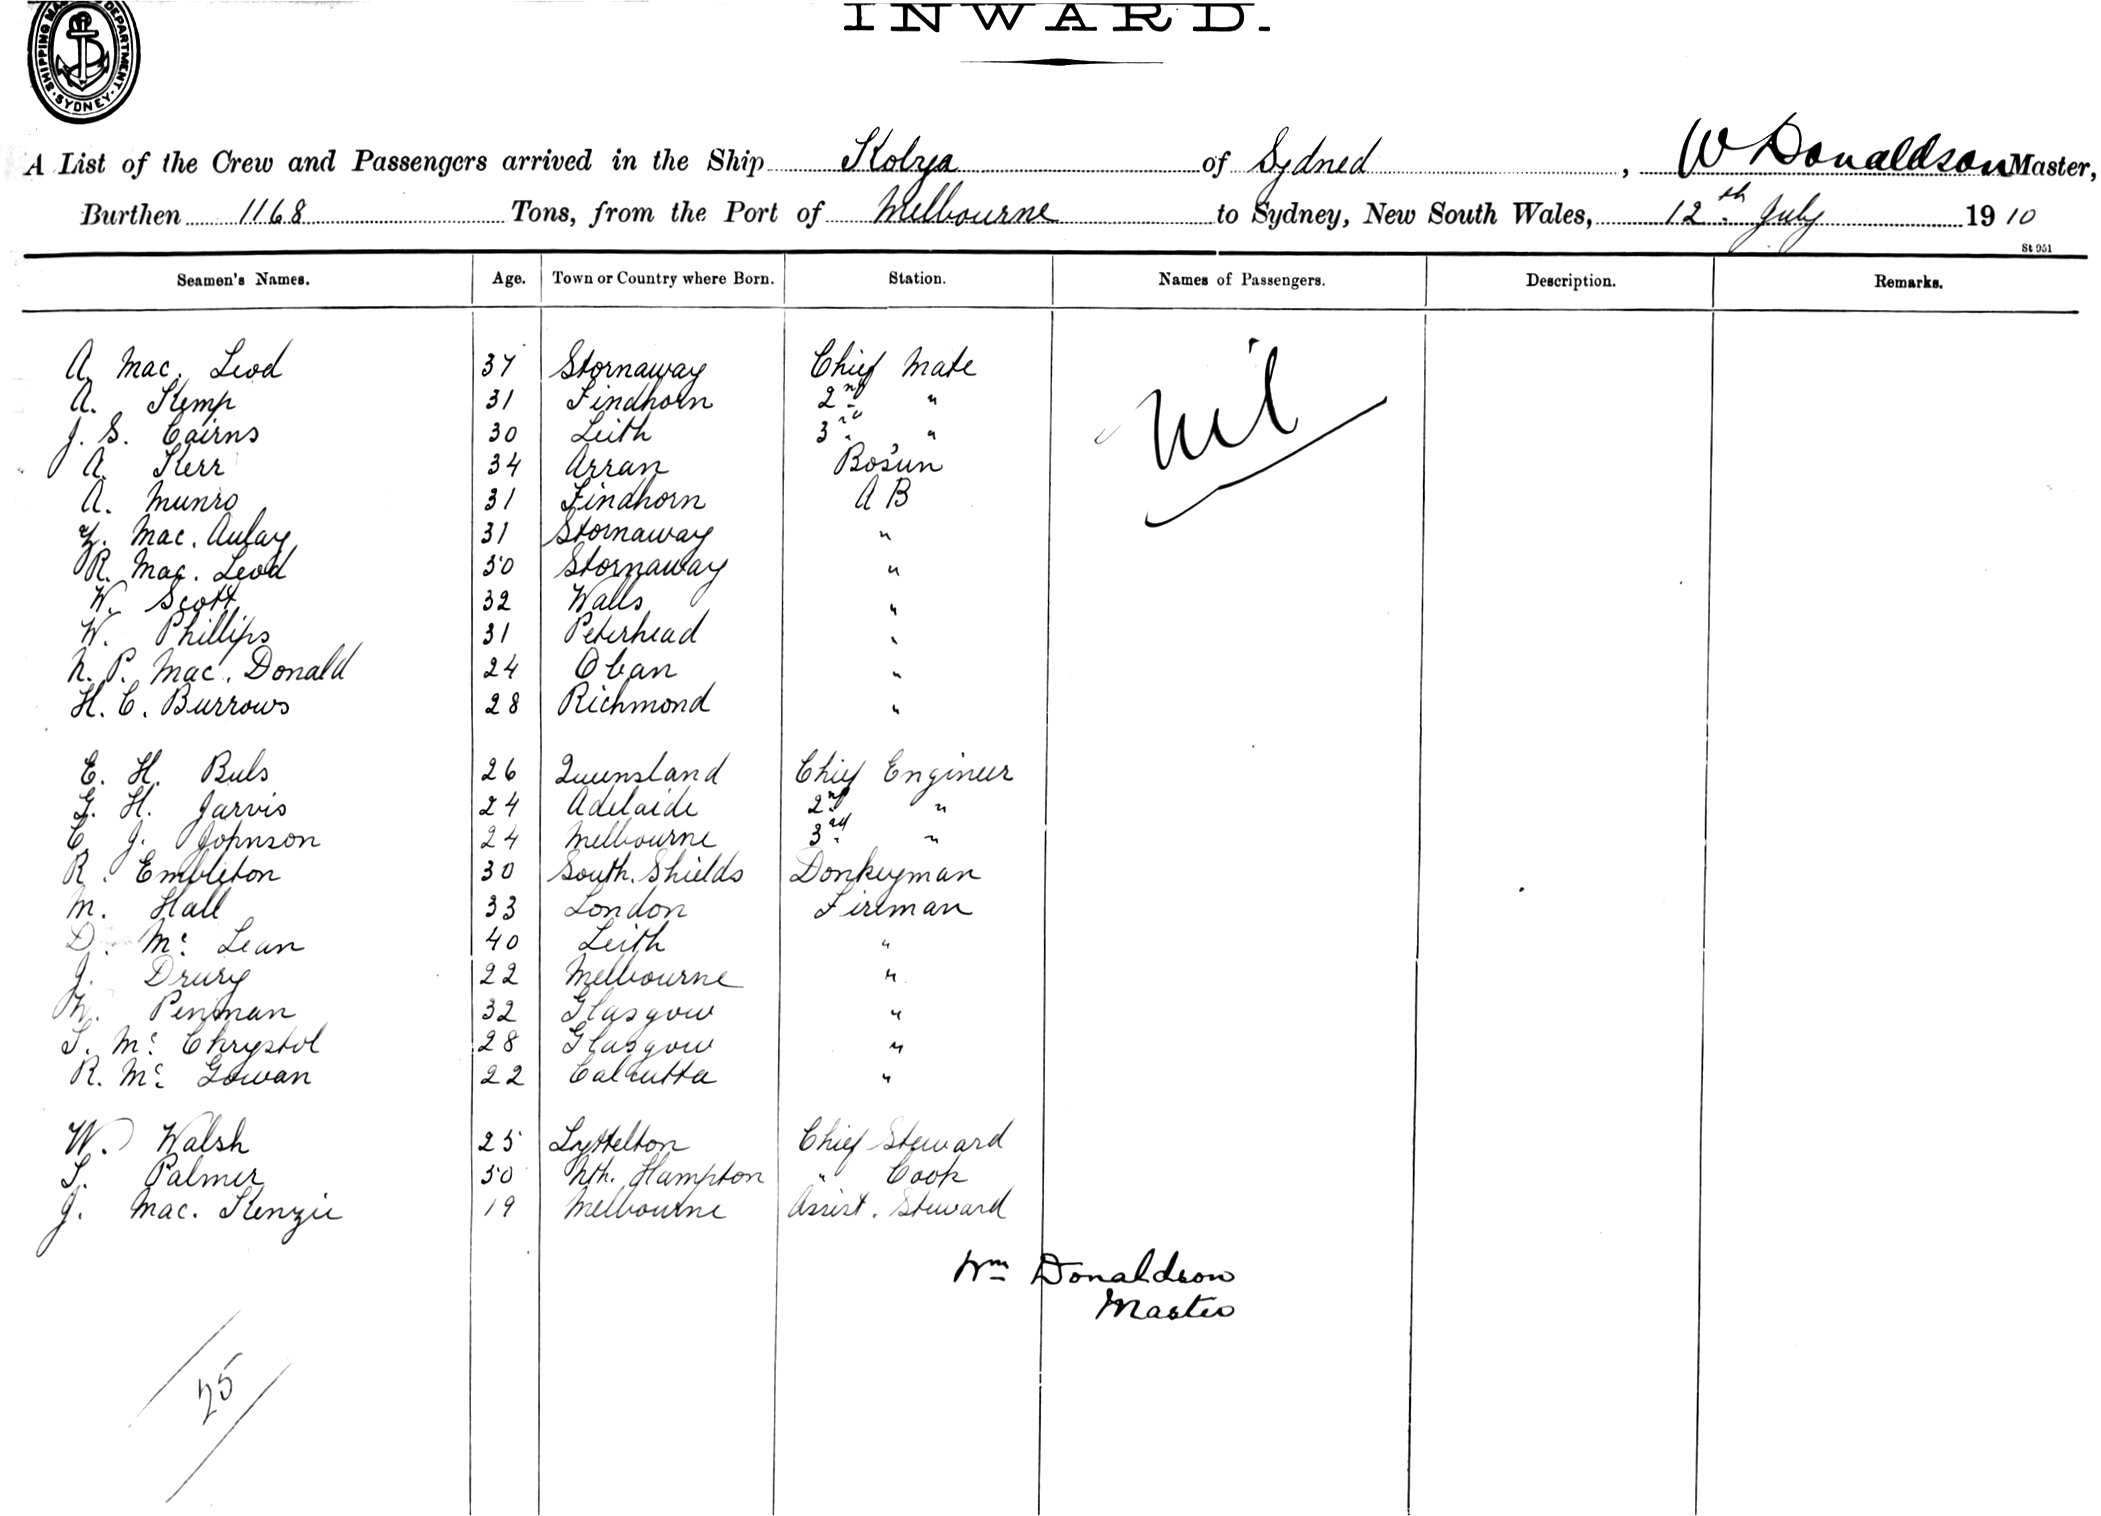 SHIPPING MA DEPARTMENT. SYDNEY.
INWARD.
A List of the Crew and Passengers arrived in the Ship Kolya of Sydned, W Donaldson Master,
Burthen 1168 Tons, from the Port of Melbourne to Sydney, New South Wales, 12th July 1910
St 951
Seamen's Names. Age. Town or Country where Born. Station. Names of Passengers. Description. Remarks.
A. Mac. Leod 37 Stornaway Chief Mate
nil
A. Kemp 31 Findhorn 2nd "
J. S. Cairns 30 Leith 3rd "
A. Kerr 34 Arran Bos'un
A. Munro 31 Findhorn A B
Mac. Aulay 31 Stornaway "
R. Mac. Leod 50 Stornaway "
W. Scott 32 Walls "
W. Phillips 31 Peterhead "
N. P. Mac. Donald 24 Oban "
H. C. Burrows 28 Richmond "
E. H. Buls 26 Queensland Chief Engineer
G. H. Jarvis 24 Adelaide 2nd "
C. J. Johnson 24 Melbourne 3rd "
R. Embleton 30 South. Shields Donkeyman
M. Hall 33 London Fireman
D. Mc. Lean 40 Leith "
J. Drury 22 Melbourne "
Penman 32 Glasgow "
T. Mc. Chrystol 28 Glasgow "
R. Mc. Gowan 22 Calcutta "
W. Walsh 25 Lyttelton Chief Steward
T. Palmer 50 Nth. Hampton " Cook
J. Mac. Kenzie 19 Melbourne Assist. Steward
Wm Donaldson
Master
25